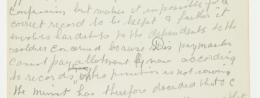 Confusion but makes it impossible for a
correct record to be kept & further it
involves hardships to the dependents to the
soldier concerned because Div paymaster
cannot pay allotment & now according
to records, the provision is not
the minist has therefore decided that